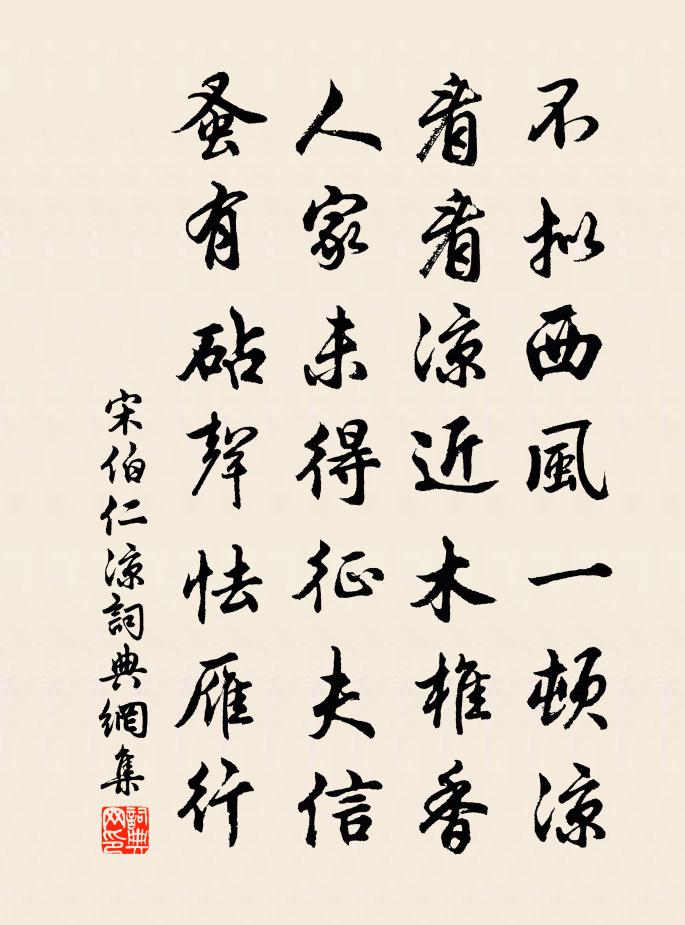 不拟西風一頓凉
看看凉近木樨香
人家未得征夫信
蚤有砧聲怯雁行
宋伯仁凉詞典網集
詞典网印